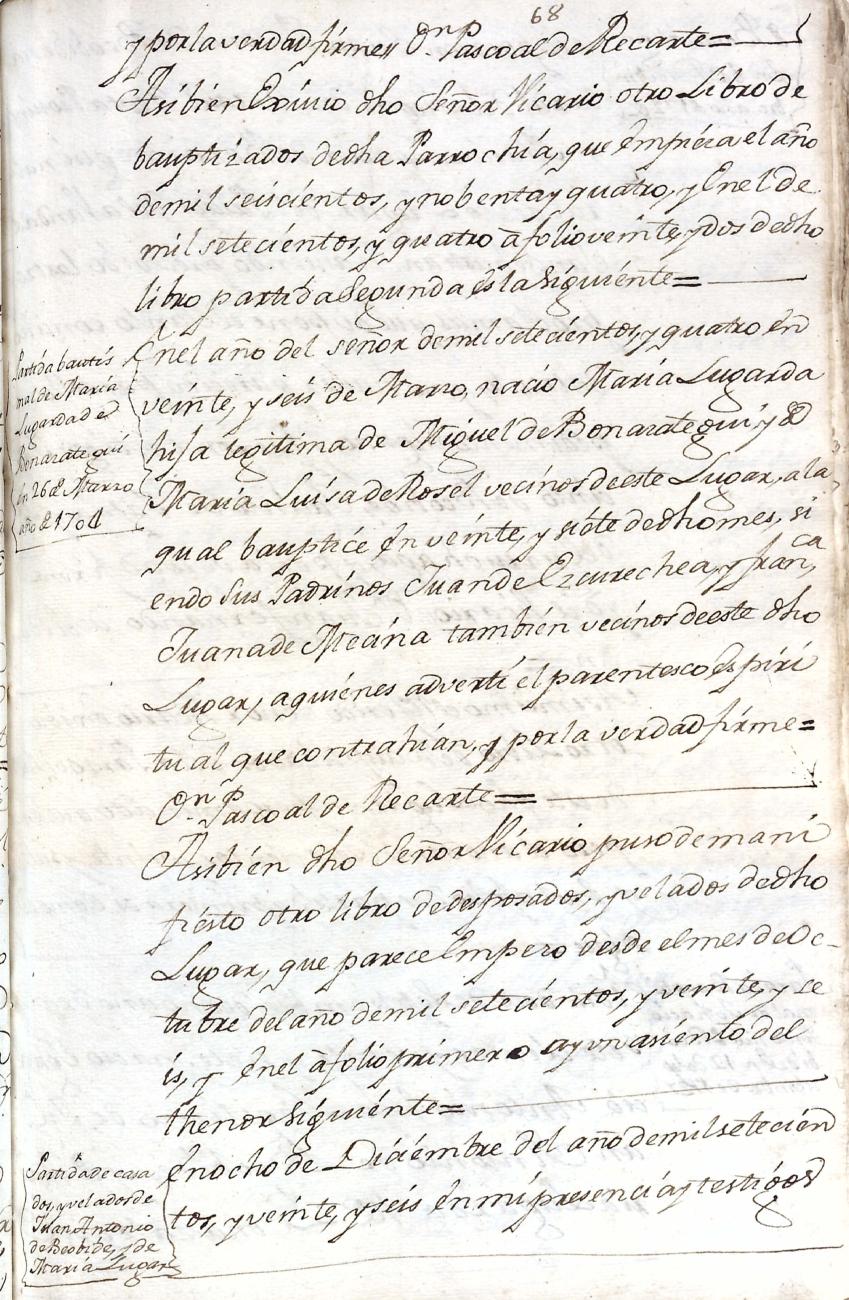 68
y por la verdad firme,, Dn. Pascoal de Recarte =
Asibien Exivio dho Señor Vicario otro Libro de
bauptizados dedha Parrochia, que Empieza el año
demil seiscientos, y nobenta y quatro, y En el de
mil setecientos, y quatro à folio veinte, y dos dedho
libro partida segunda és la siguiente =
Partida bautis
mal de Maria
Lugarda de
Bonarategui
En 26 de Marzo
año de 1704
En el año del señor demil setecientos, y quatro én
veinte, y seis de Marzo, nacio Maria Lugarda
hija legitima de Miguel de Bonarategui, y de
Maria Luisa de Rosel vecinos de este Lugar, a la
qual bauptice én veinte, y siéte dedho mes, si
endo sus Padrinos Juan de Ezcurechea, y Franca,
Juana de también vecinos de este dho
Lugar, a quiénes adverti el parentesco éspiri
tual que contrahian, y por la verdad firme =
Dn. Pascoal de Recarte =
Asibién dho Señor Vicario puso de mani
fiésto otro libro de desposados, y velados dedho
Lugar, que parece Empezo desde el mes de Oc-
tubre del año demil setecientos, y veinte, y se
is, y én el à folio primero ay un asiénto del
thenor siguiénte =
Partida de casa
dos, y velados de
Juan Antonio
de Beobide, y de
Maria Lugar
én ocho de Diciémbre del año demil setecién
tos, y veinte, y seis én mi presencia, y testigos